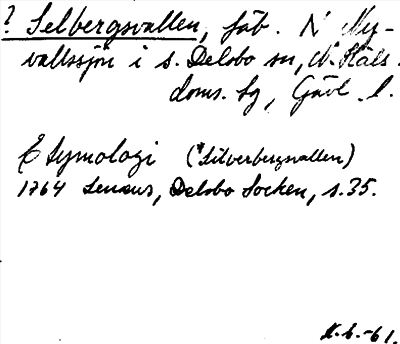 ? Selbergsvallen, fäb. N Ny-
vallssjön i s. Delsbo sn, N. Häls.
doms. sg, Gävl. l.
Etymologi (*Silverbergsvallen)
1764 Lenæus, Delsbo Socken, s. 35.
-61.